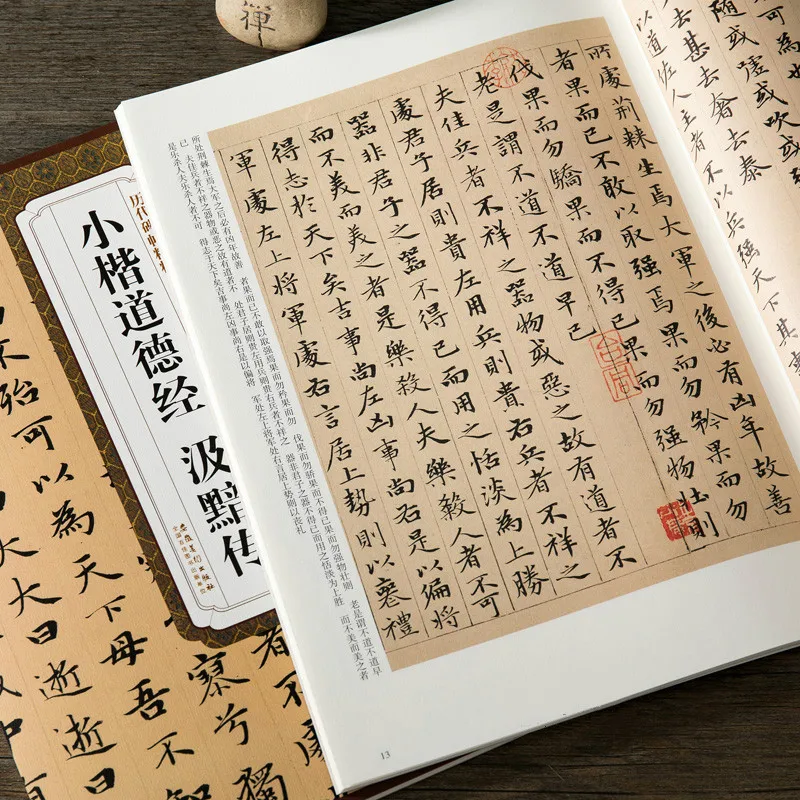 禅
可為也
隨或噓或吹
去甚去奢去泰
以道佐人主者不以兵强天下其事
所處荆棘生焉大軍之後必有凶年故善
者果而已不敢以取强焉果而勿矜果而勿
伐果而勿驕果而不得已果而勿强物壯則
老是謂不道不道早已
夫佳兵者不祥之器物或惡之故有道者不
處君子居則貴左用兵則貴右兵者不祥之
器非君子之器不得已而用之恬淡為上勝
而不美而美之者是樂殺人夫樂殺人者不可
得志於天下矣吉事尚左凶事尚右是以偏將
軍處左上將軍處右言居上勢則以喪禮
所处荆棘生焉大军之后必有凶年故善　者果而已不敢以取强焉果而勿矜果而勿　伐果而勿骄果而不得已果而勿强物壮则　老是谓不道不道早
已　夫佳兵者不祥之器物或恶之故有道者不　处君子居则贵左用兵则贵右兵者不祥之　器非君子之器不得已而用之恬淡为上胜　而不美而美之者
是乐杀人夫乐杀人者不可　得志于天下矣吉事尚左凶事尚右是以偏将　军处左上将军处右言居上势则以丧礼
13
历代碑帖精粹
小楷道德经 汲黯传
安徽美术出版社
全国百佳图书出版单位
兮獨
殆可以為天下母吾不
大大曰逝逝曰